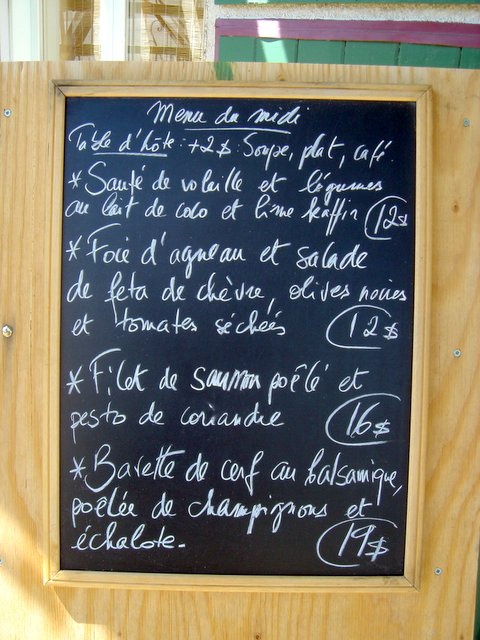 Menu du midi
Table d'hôte: +2$: Soupe, plat, café
*Sauté de volaille et légumes
au lait de coco et lime kaffir 12$
*Foie d'agneau et salade
de feta de chèvre, olives noires
et tomates séchées 12$
*Filet de saumon poêlé et
pesto de coriandre 16$
*Bavette de cerf au balsamique,
poêlée de champignons et
échalote. 19$